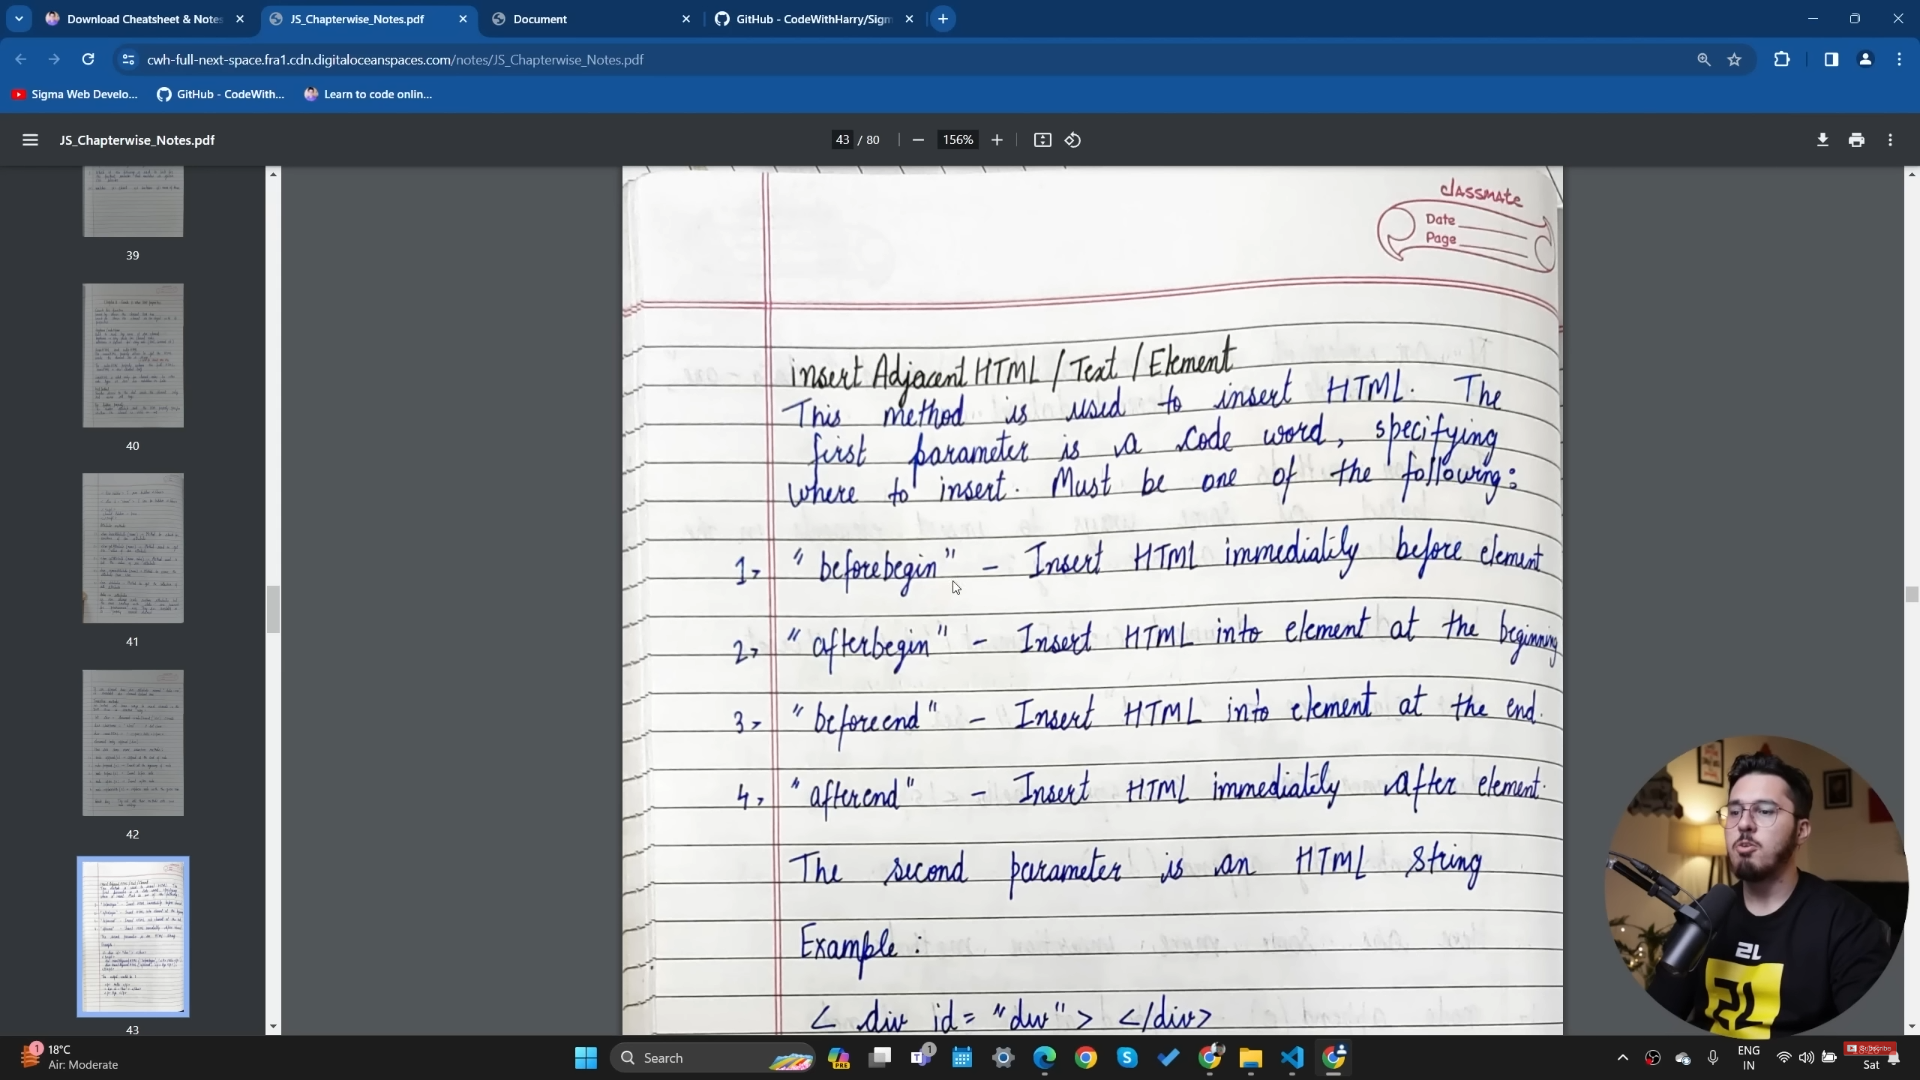 Download Cheatsheet & Notes
JS_Chapterwise_Notes.pdf
Document
GitHub - CodeWithHarry/Sigm
cwh-full-next-space.fra1.cdn.digitaloceanspaces.com/notes/JS_Chapterwise_Notes.pdf
Sigma Web Develo...
GitHub - CodeWith...
Learn to code onlin...
JS_Chapterwise_Notes.pdf
43 / 80
156%
39
40
41
42
43
classmate
Date
Page
insert Adjacent HTML / Text / Element
This method is used to insert HTML. The
first parameter is a code word, specifying
where to insert. Must be one of the following:
1> "beforebegin" - Insert HTML immediatily before element
2> "afterbegin" - Insert HTML into element at the beginning
3> "beforeend" - Insert HTML into element at the end.
4> "afterend" - Insert HTML immediatily after element.
The second parameter is an HTML string
Example :
< div id = "div" > </div>
1
18°C
Air: Moderate
Search
PRE
1
ENG
IN
Subscribe
Sat